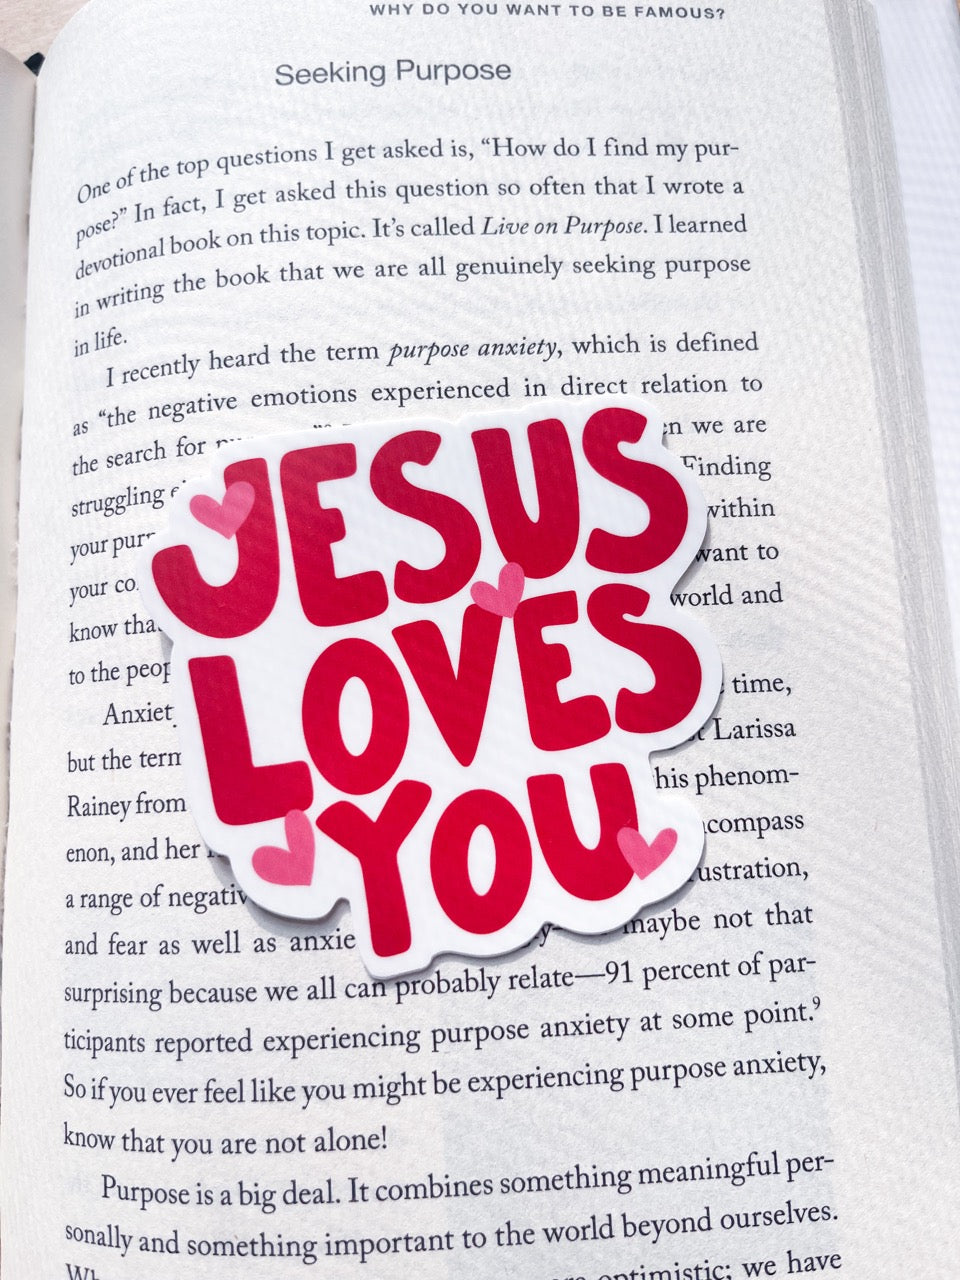 WHY DO YOU WANT TO BE FAMOUS?
Seeking Purpose
One of the top questions I get asked is, “How do I find my pur-
pose?” In fact, I get asked this question so often that I wrote a
devotional book on this topic. It’s called Live on Purpose. I learned
in writing the book that we are all genuinely seeking purpose
in life.
I recently heard the term purpose anxiety, which is defined
as “the negative emotions experienced in direct relation to
the search for we are
struggling Finding
your within
your want to
know world and
to the
time,
but the Larissa
Rainey from phenom-
enon, and her
a range of
and fear as well as maybe not that
surprising because we all can probably relate—91 percent of par-
ticipants reported experiencing purpose anxiety at some point.⁹
So if you ever feel like you might be experiencing purpose anxiety,
know that you are not alone!
Purpose is a big deal. It combines something meaningful per-
sonally and something important to the world beyond ourselves.
optimistic; we have
JESUS
LOVES
YOU